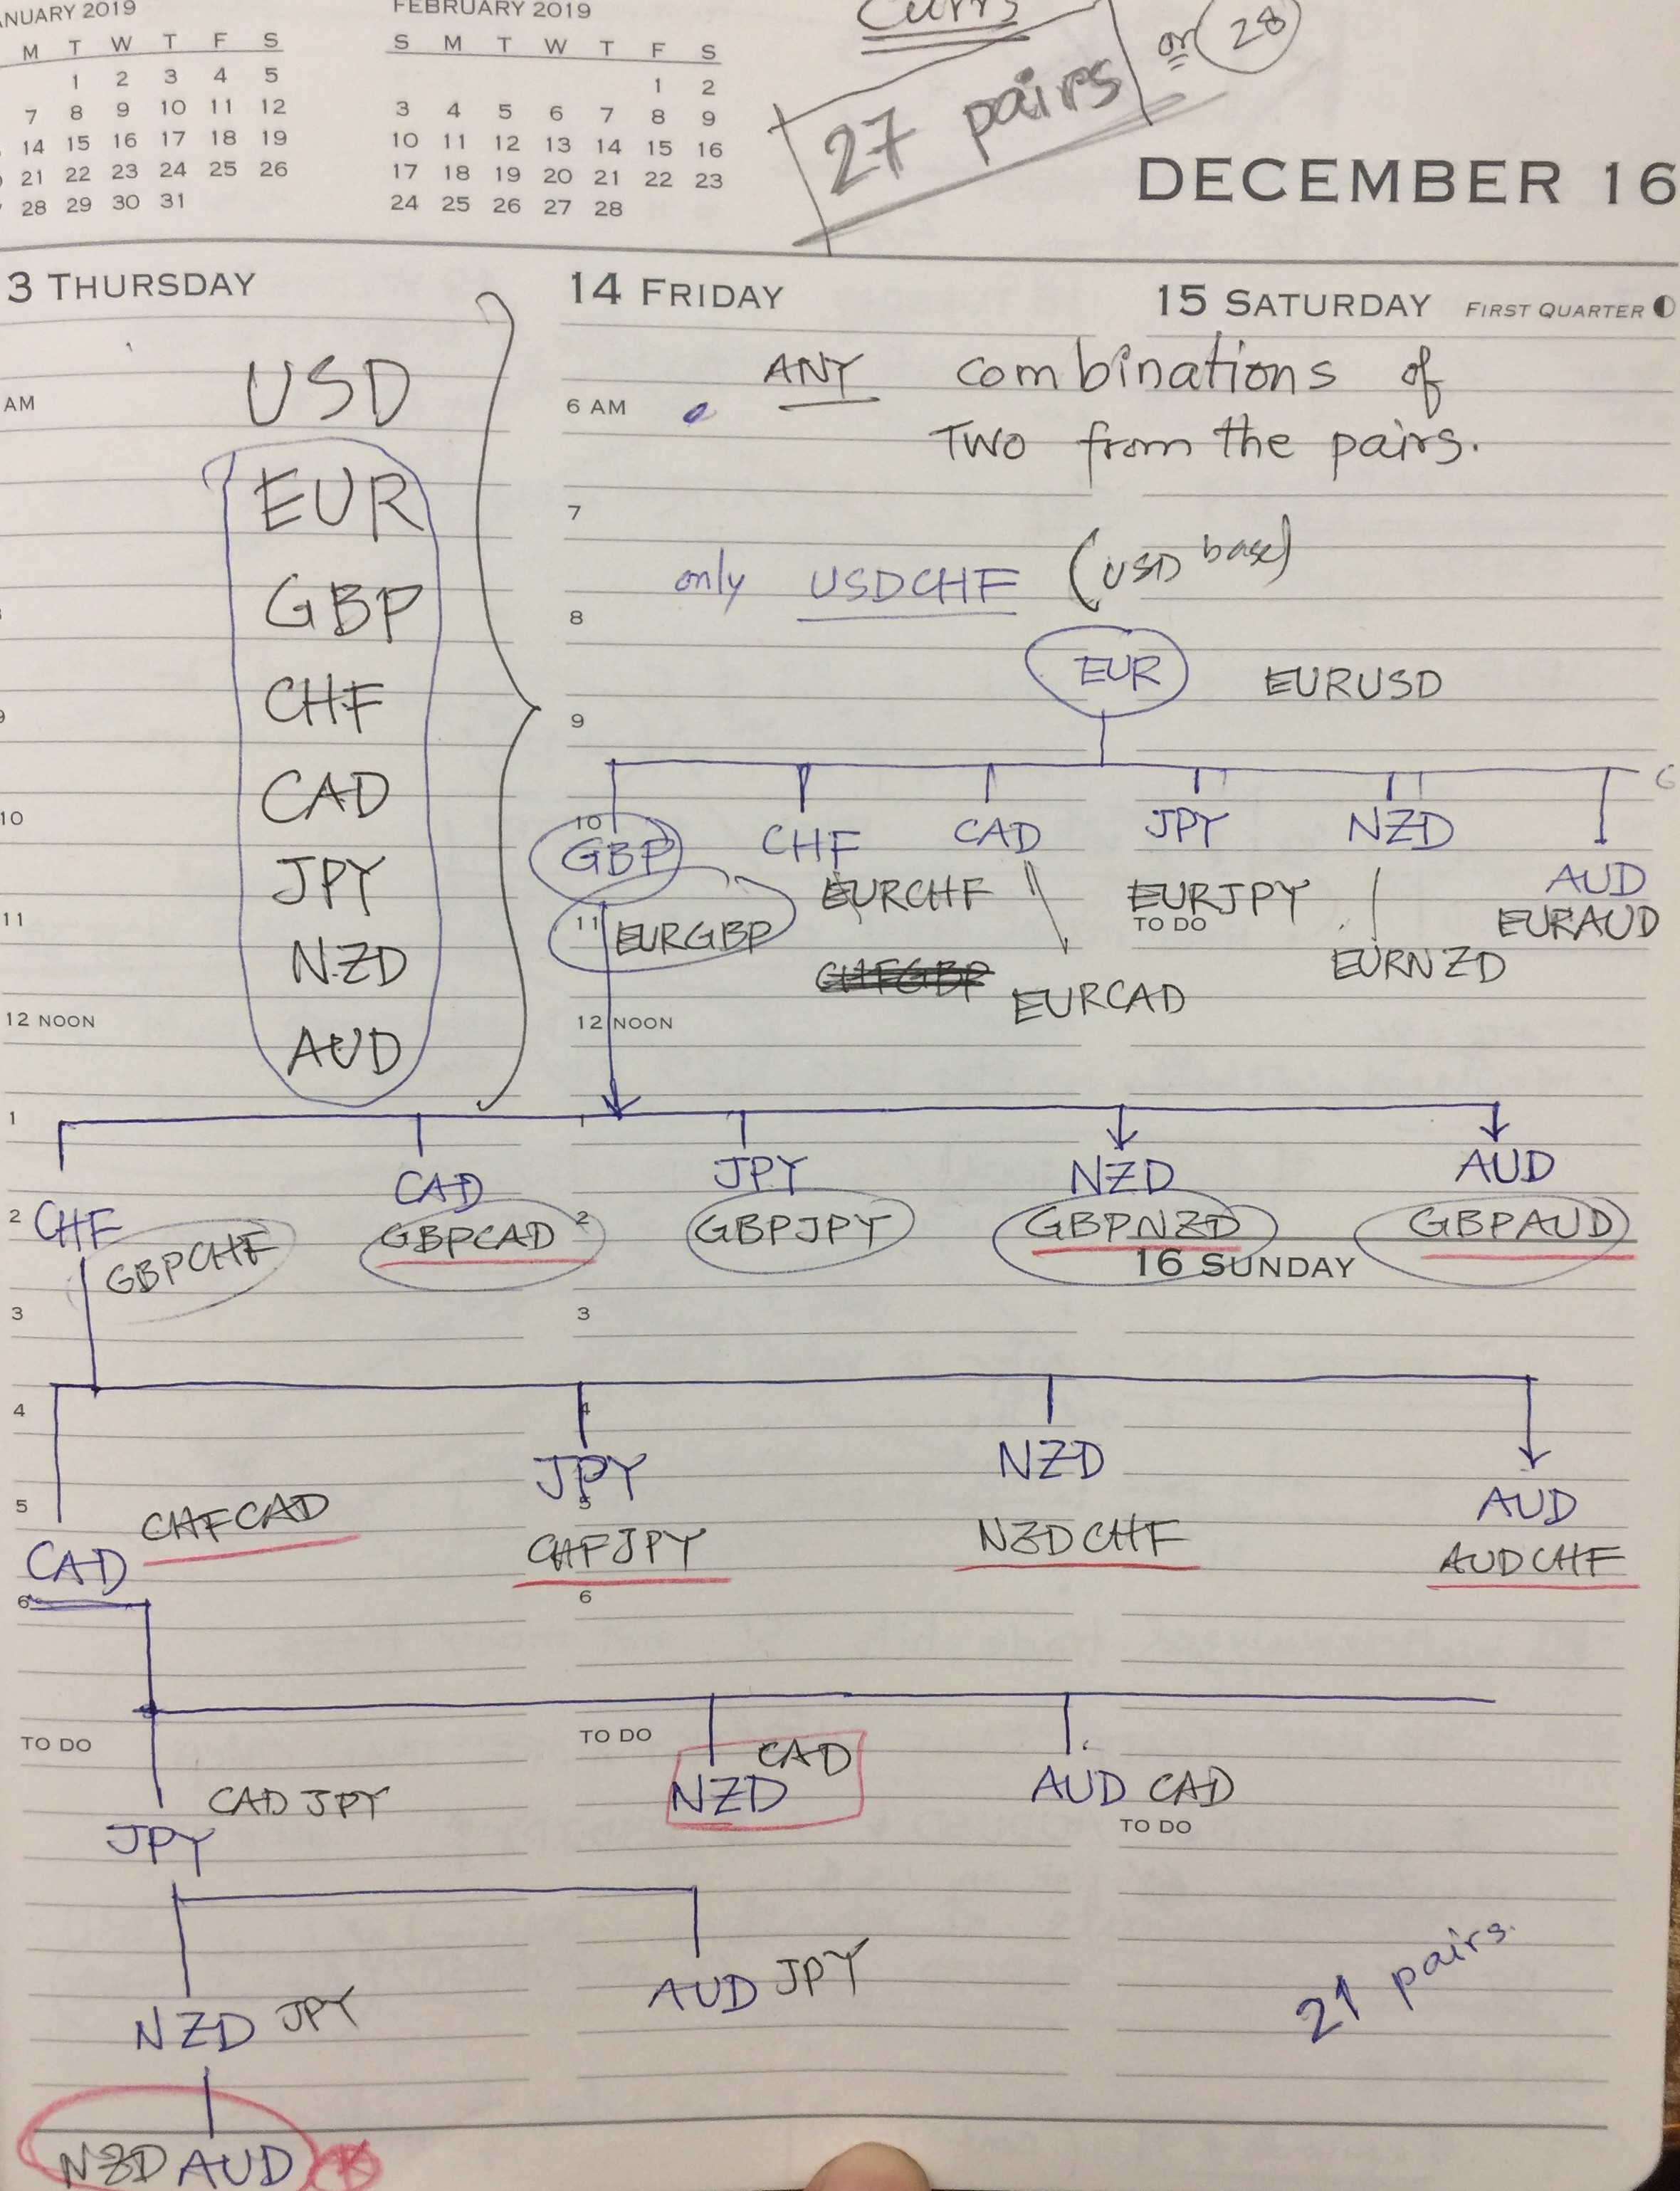 ANUARY 2019
M T W T F S
1 2 3 4 5
7 8 9 10 11 12
14 15 16 17 18 19
21 22 23 24 25 26
28 29 30 31
FEBRUARY 2019
S M T W T F S
1 2
3 4 5 6 7 8 9
10 11 12 13 14 15 16
17 18 19 20 21 22 23
24 25 26 27 28
Currs
27 pairs or 28
DECEMBER 16
3 THURSDAY
14 FRIDAY
15 SATURDAY FIRST QUARTER
AM
USD
EUR
GBP
CHF
CAD
JPY
NZD
AUD
10
11
12 NOON
6 AM
ANY combinations of
Two from the pairs.
7
only USDCHF (USD base)
8
EUR EURUSD
9
10
GBP CHF CAD JPY NZD AUD
11
EURGBP EURCHF EURCAD EURJPY EURNZD EURAUD
TO DO
12 NOON
1 1
CHF CAD JPY NZD AUD
2 2
GBPCHF GBPCAD GBPJPY GBPNZD GBPAUD
16 SUNDAY
3 3
4 4
CAD JPY NZD AUD
5 5
CHFCAD CHFJPY NZDCHF AUDCHF
6 6
TO DO TO DO
JPY CADJPY
NZD CAD
AUD CAD
TO DO
NZD JPY
AUD JPY
21 pairs.
NZDAUD